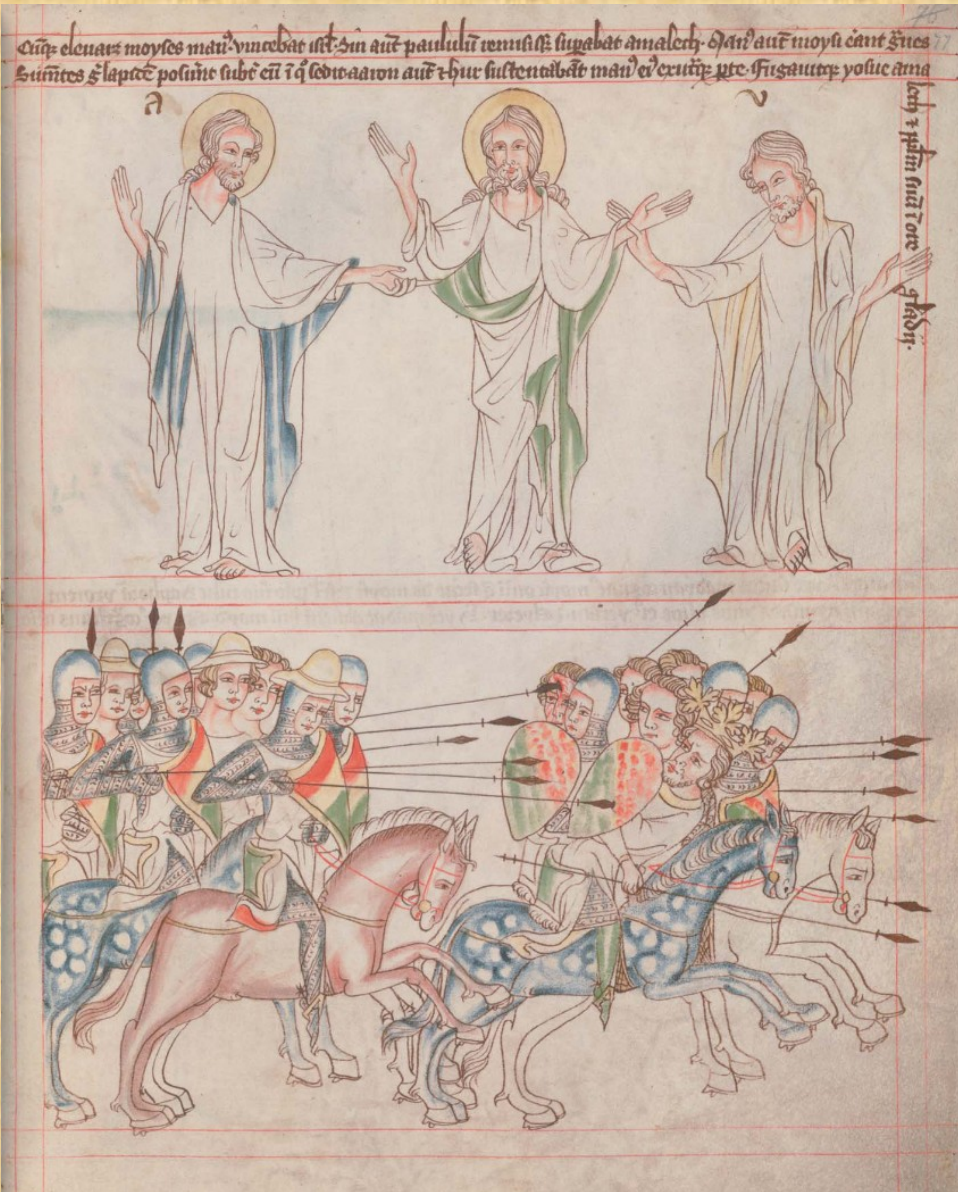 Cūq; eleuaret moyses man᷒ · vincebat isrł · Sin aūt paululū remisiss; supabat amalech · Man᷒ aūt moysi erant g̃ues
Sum̄tes g̃ lapidē posuer̄t subt᷒ eū ī q̊ sedit · aaron aūt ⁊ hur sustentabāt man᷒ ei᷒ ex utraq; pte · ffugauitq; yosue ama
lech ⁊ pplm̄ suū ī ore gladij ·
a